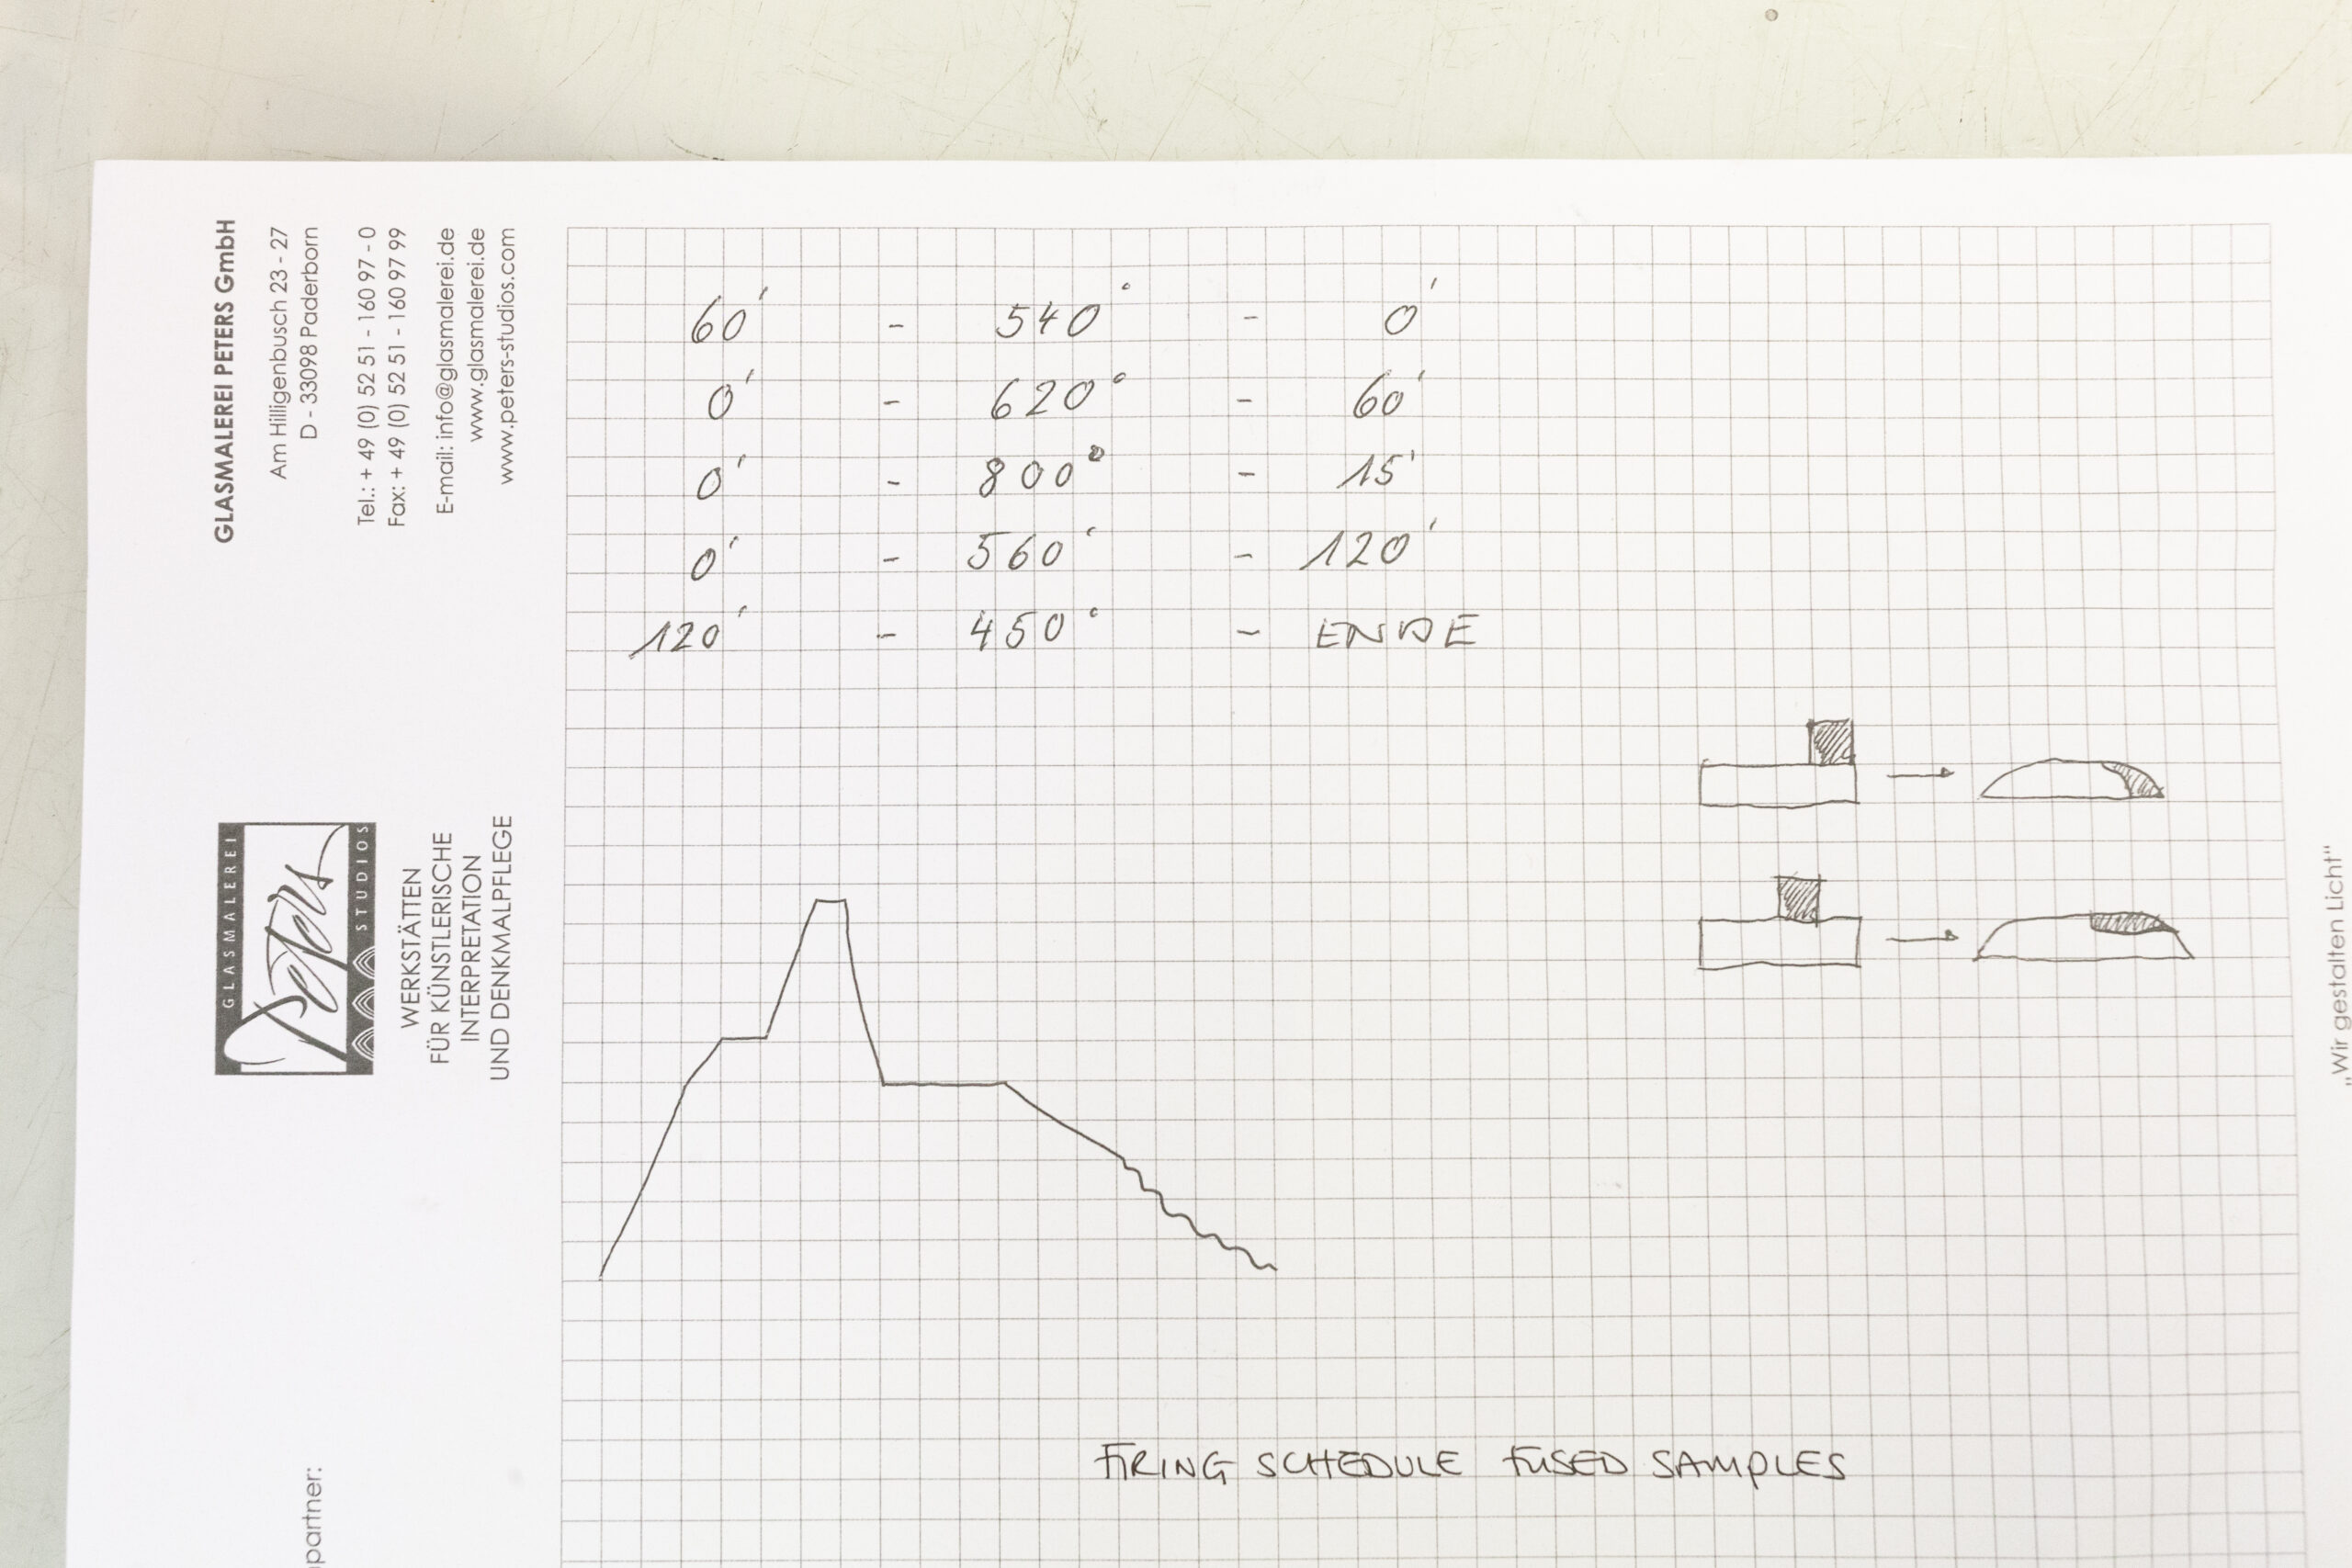 GLASMALEREI PETERS GmbH
Am Hilligenbusch 23 - 27
D - 33098 Paderborn
Tel.: + 49 (0) 52 51 - 160 97 - 0
Fax: + 49 (0) 52 51 - 160 97 99
E-mail: info@glasmalerei.de
www.glasmalerei.de
www.peters-studios.com
60' - 540° - 0'
0' - 620° - 60'
0' - 800° - 15'
0' - 560° - 120'
120' - 450° - ENDE
GLASMALEREI
Peters
STUDIOS
WERKSTÄTTEN
FÜR KÜNSTLERISCHE
INTERPRETATION
UND DENKMALPFLEGE
„Wir gestalten Licht"
FIRING SCHEDULE FUSED SAMPLES